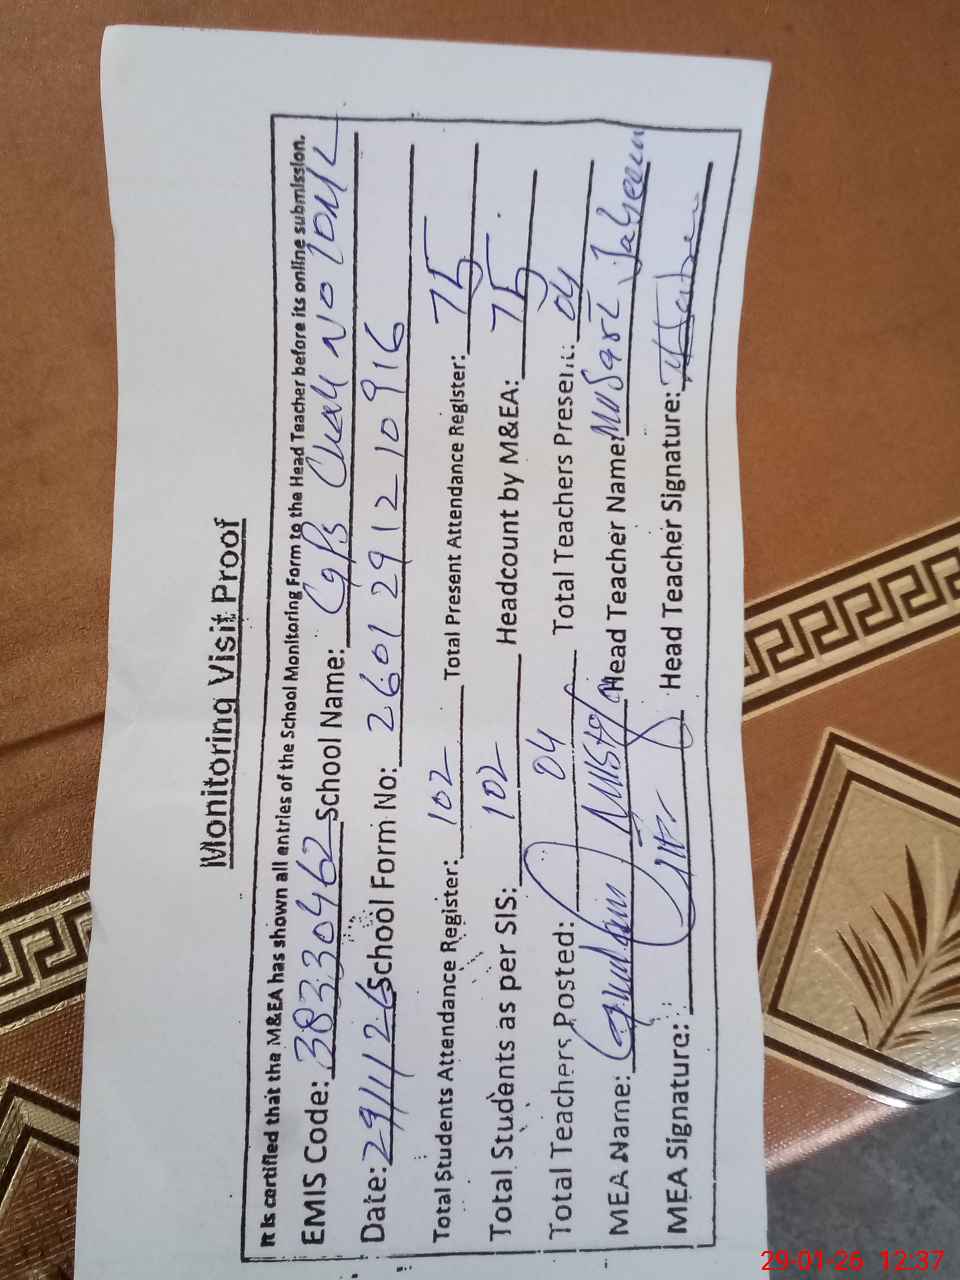 Monitoring Visit Proof
It is certified that the M&EA has shown all entries of the School Monitoring Form to the Head Teacher before its online submission.
EMIS Code: 38330462 School Name: GPS Chak No 10M2
Date: 29/1/26 School Form No: 2601 2912 10916
Total Students Attendance Register: 102 Total Present Attendance Register: 75
Total Students as per SIS: 102 Headcount by M&EA: 75
Total Teachers Posted: 04 Total Teachers Present: 04
MEA Name: Mustafa Head Teacher Name:
MEA Signature: Head Teacher Signature:
29-01-26 12:37